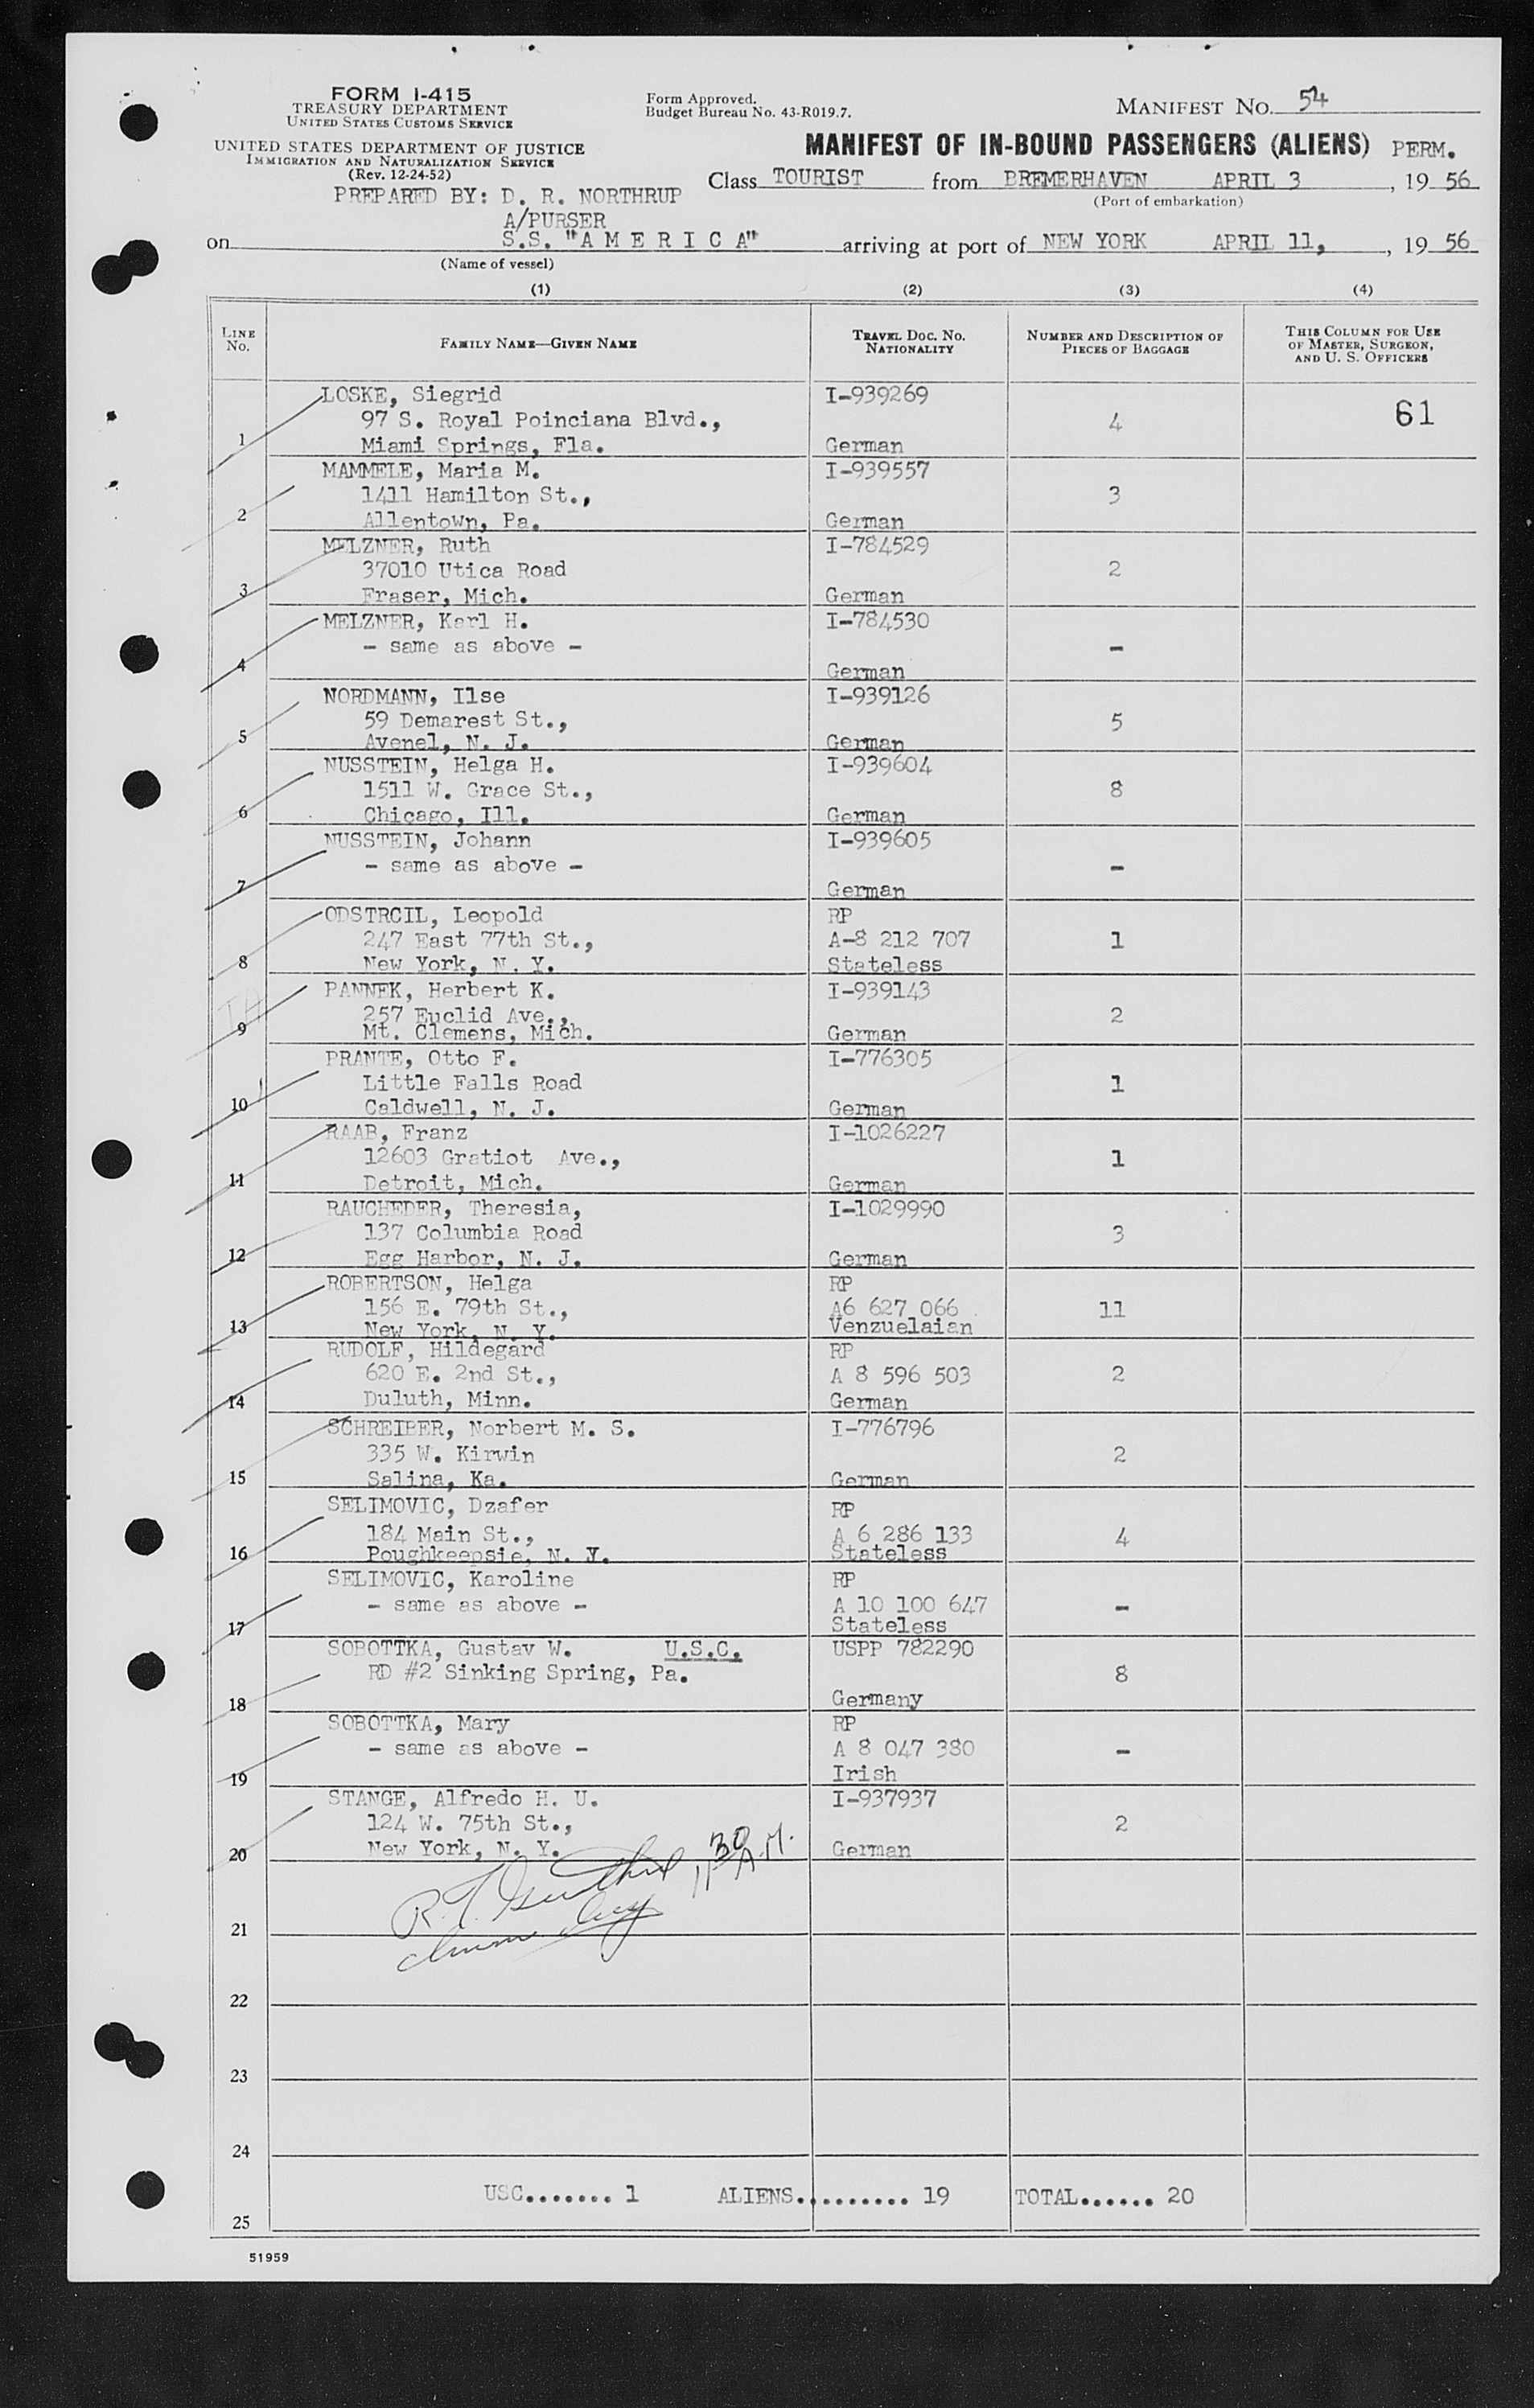 FORM I-415
TREASURY DEPARTMENT
UNITED STATES CUSTOMS SERVICE
UNITED STATES DEPARTMENT OF JUSTICE
IMMIGRATION AND NATURALIZATION SERVICE
(Rev. 12-24-52)
Form Approved.
Budget Bureau No. 43-R019.7.
MANIFEST NO. 54
MANIFEST OF IN-BOUND PASSENGERS (ALIENS) PERM.
PREPARED BY: D. R. NORTHRUP
A/PURSER
Class TOURIST from BREMERHAVEN APRIL 3, 19 56
(Port of embarkation)
on S.S. "A M E R I C A" arriving at port of NEW YORK APRIL 11, , 19 56
(Name of vessel)
(1) (2) (3) (4)
LINE NO. FAMILY NAME—GIVEN NAME TRAVEL DOC. NO. NATIONALITY NUMBER AND DESCRIPTION OF PIECES OF BAGGAGE THIS COLUMN FOR USE OF MASTER, SURGEON, AND U. S. OFFICERS
LOSKE, Siegrid I-939269
97 S. Royal Poinciana Blvd., 4 61
1 Miami Springs, Fla. German
MAMMELE, Maria M. I-939557
1411 Hamilton St., 3
2 Allentown, Pa. German
MELZNER, Ruth I-784529
37010 Utica Road 2
3 Fraser, Mich. German
MELZNER, Karl H. I-784530
- same as above - -
4 German
NORDMANN, Ilse I-939126
59 Demarest St., 5
5 Avenel, N. J. German
NUSSTEIN, Helga H. I-939604
1511 W. Grace St., 8
6 Chicago, Ill. German
NUSSTEIN, Johann I-939605
- same as above - -
7 German
ODSTRCIL, Leopold RP
247 East 77th St., A-8 212 707 1
8 New York, N. Y. Stateless
PANNEK, Herbert K. I-939143
257 Euclid Ave., 2
9 Mt. Clemens, Mich. German
PRANTE, Otto F. I-776305
Little Falls Road 1
10 Caldwell, N. J. German
RAAB, Franz I-1026227
12603 Gratiot Ave., 1
11 Detroit, Mich. German
RAUCHEDER, Theresia, I-1029990
137 Columbia Road 3
12 Egg Harbor, N. J. German
ROBERTSON, Helga RP
156 E. 79th St., A6 627 066 11
13 New York, N. Y. Venzuelaian
RUDOLF, Hildegard RP
620 E. 2nd St., A 8 596 503 2
14 Duluth, Minn. German
SCHREIBER, Norbert M. S. I-776796
335 W. Kirwin 2
15 Salina, Ka. German
SELIMOVIC, Dzafer RP
184 Main St., A 6 286 133 4
16 Poughkeepsie, N. Y. Stateless
SELIMOVIC, Karoline RP
- same as above - A 10 100 647 -
17 Stateless
SOBOTTKA, Gustav W. U.S.C. USPP 782290
RD #2 Sinking Spring, Pa. 8
18 Germany
SOBOTTKA, Mary RP
- same as above - A 8 047 380 -
19 Irish
STANGE, Alfredo H. U. I-937937
124 W. 75th St., 2
20 New York, N. Y. German
1130 A.M.
R.T.
21
22
23
24
USC....... 1 ALIENS.......... 19 TOTAL...... 20
25
51959